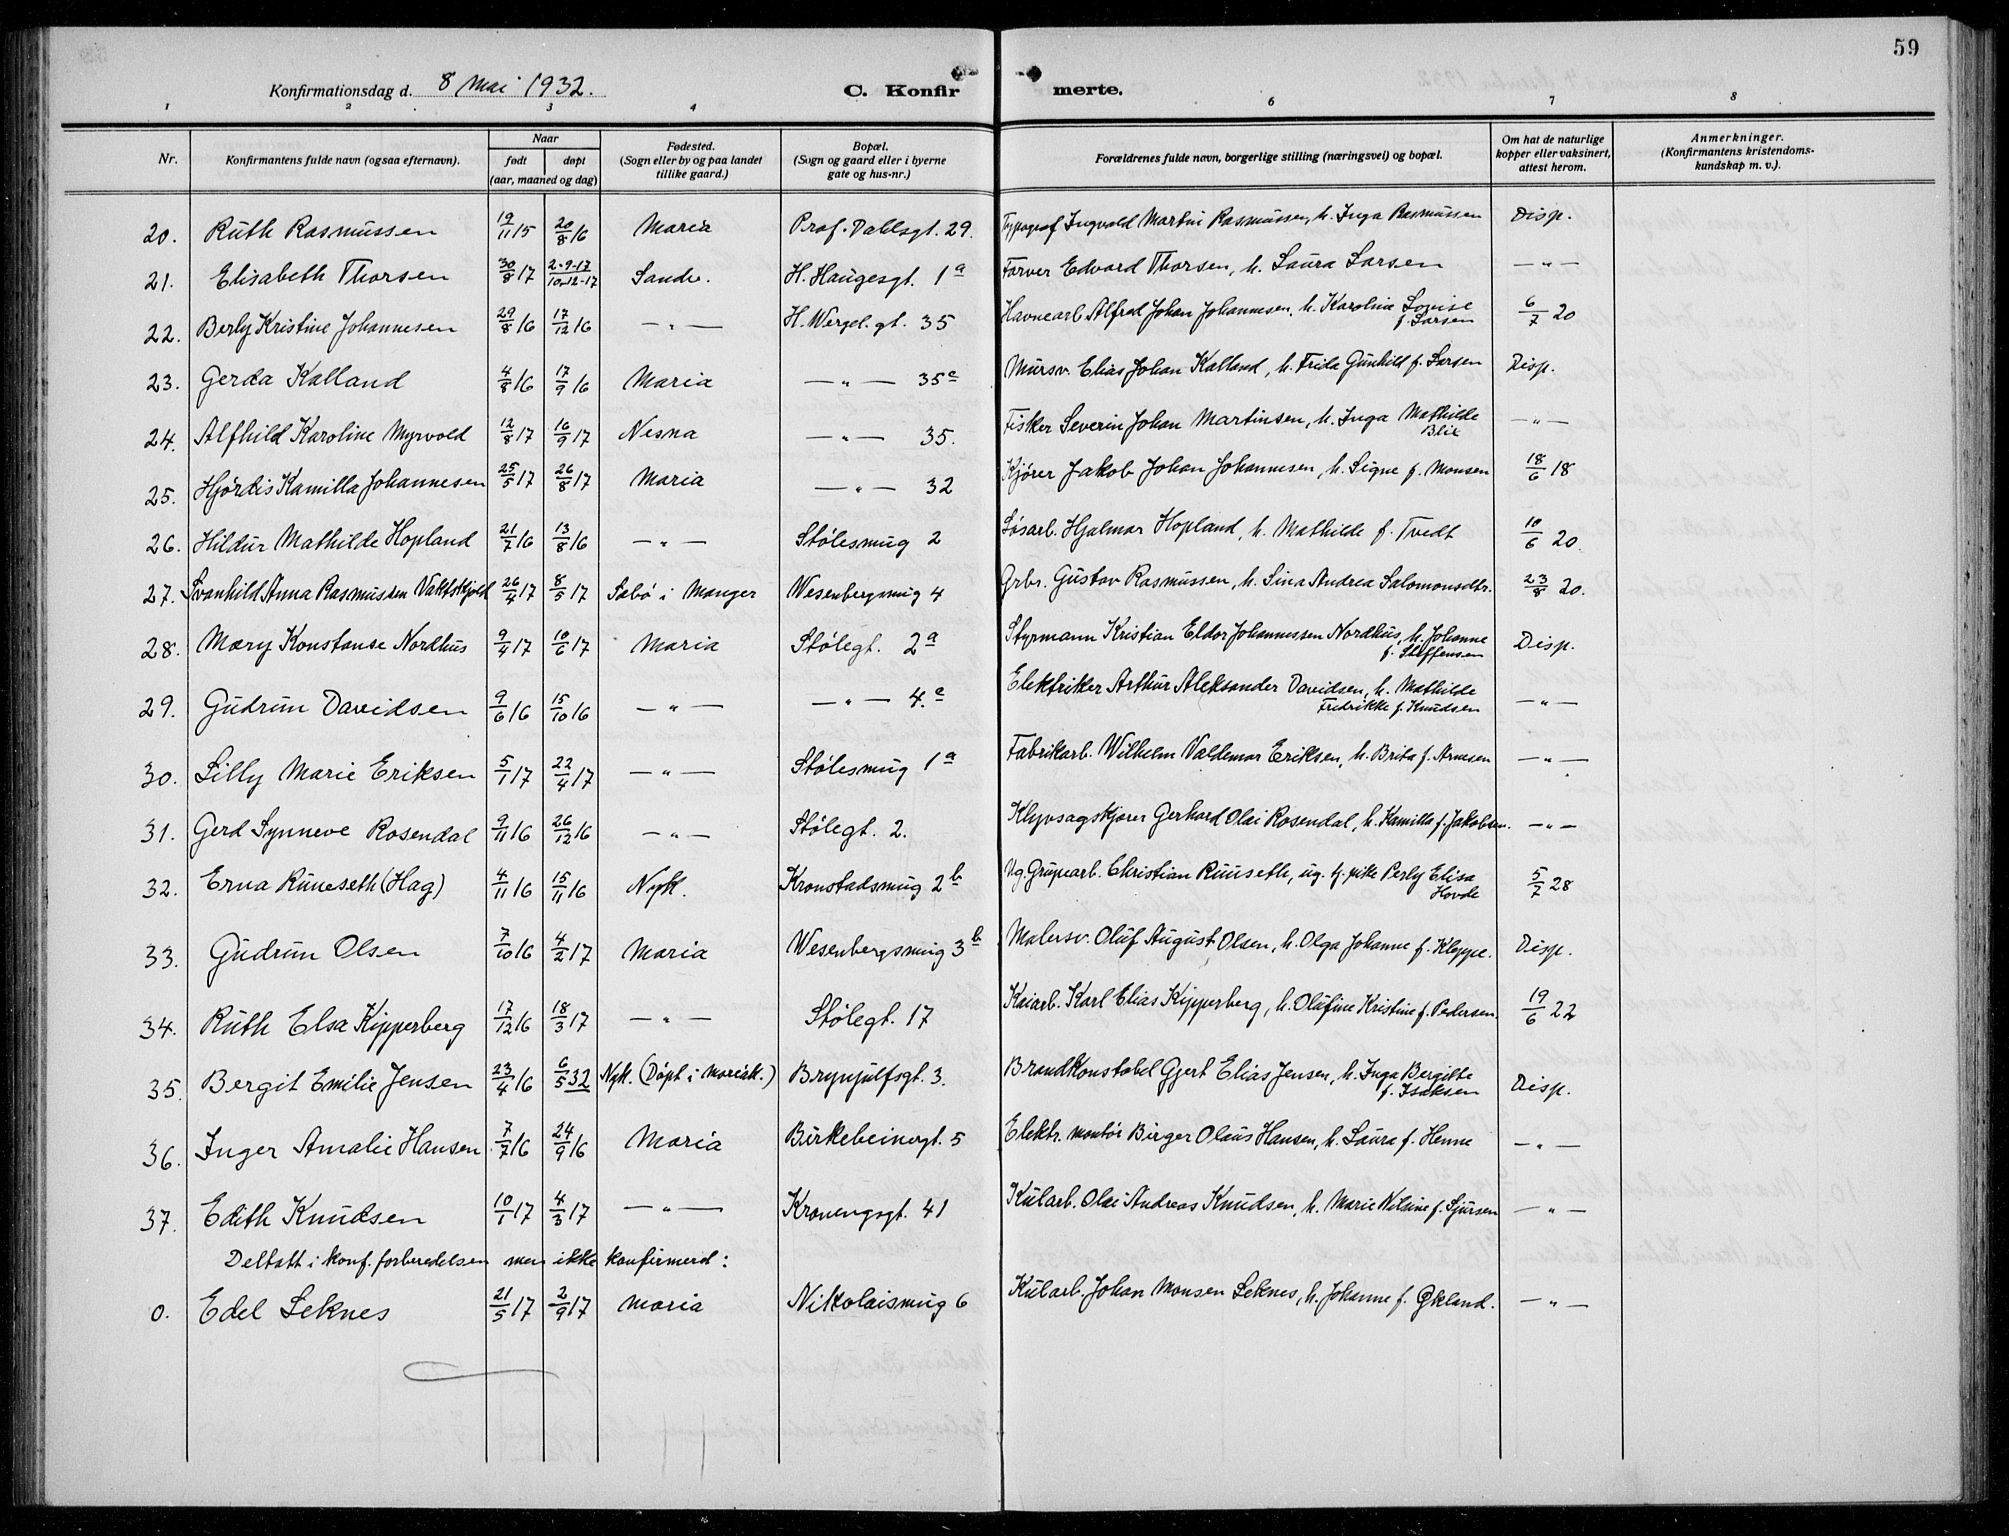 59
Konfirmationsdag d. 8 Mai 1932. C. Konfirmerte.
1 2 3 4 6 7 8
Nr. Konfirmantens fulde navn (ogsaa efternavn). Naar født døpt (aar, maaned og dag) Fødested. (Sogn eller by og paa landet tillike gaard.) Bopæl. (Sogn og gaard eller i byerne gate og hus-nr.) Forældrenes fulde navn, borgerlige stilling (næringsvei) og bopæl. Om hat de naturlige kopper eller vaksinert, attest herom. Anmerkninger. (Konfirmantens kristendomskundskap m. v.).
20. Ruth Rasmussen 19/11 15 20/8 16 Maria Prof. Dahlsgt. 29. Typograf Ingvald Martin Rasmussen, h. Inga Rasmussen Disp.
21. Elisabeth Thorsen 30/8 17 2-9-17 10-12-17 Sandv. H. Haugesgt. 1a Farver Edvard Thorsen, h. Laura Larsen — " —
22. Berly Kristine Johannesen 29/8 16 17/12 16 — " — H. Wergel. gt. 35 Havnearb. Alfred Johan Johannesen, h. Karoline Lovise f. Larsen 6/7 20
23. Gerda Kalland 4/8 16 17/9 16 Maria — " — 35c Mursv. Elias Johan Kalland, h. Frida Gunhild f. Larsen Disp.
24. Alfhild Karoline Myrvold 12/8 17 16/9 17 Nesna — " — 35. Fisker Severin Johan Martinsen, h. Inga Mathilde Blix — " —
25. Hjørdis Kamilla Johannesen 25/5 17 26/8 17 Maria — " — 32 Kjører Jakob Johan Johannesen, h. Signe f. Monsen 18/6 18
26. Hildur Mathilde Hopland 21/7 16 13/8 16 — " — Stølesmug 2 Løsarb. Hjalmar Hopland, h. Mathilde f. Tvedt 10/6 20.
27. Svanhild Anna Rasmussen Vaktskjold 26/4 17 8/5 17 Sæbø i Manger Wesenbergsmug 4 Grbr. Gustav Rasmussen, h. Sina Andrea Salomonsdtr. 23/8 20.
28. Mary Konstanse Nordhus 9/4 17 10/6 17 Maria Stølegt. 2a Styrmann Kristian Eldor Johannessen Nordhus, h. Johanne f. Steffensen Disp.
29. Gudrun Davidsen 9/6 16 15/10 16 — " — — " — 4.c Elektriker Arthur Aleksander Davidsen, h. Mathilde Fredrikke f. Knudsen — " —
30. Lilly Marie Eriksen 5/1 17 22/4 17 — " — Stølesmug 1a Fabrikarb. Wilhelm Valdemar Eriksen, h. Brita f. Arnesen — " —
31. Gerd Synneve Rosendal 9/11 16 26/12 16 — " — Stølegt. 2. Klyvsagskjører Gerhard Olai Rosendal, h. Kamilla f. Jakobsen. — " —
32. Erna Runeseth (Hag) 4/11 16 15/11 16 Nyk. Kronstadsmug 2b Ug. Grupearb. Christian Ruuseth, ug. tj. pike Perly Elisa Hovde 5/7 28
33. Gudrun Olsen 7/10 16 4/2 17 Maria Wesenbergsmug 3b Malersv. Oluf August Olsen, h. Olga Johanne f. Kleppe. Disp.
34. Ruth Elsa Kipperberg 17/12 16 18/3 17 — " — Stølegt. 17 Kaiarb. Karl Elias Kipperberg, h. Olufine Kristine f. Pedersen. 19/6 22
35. Bergit Emilie Jensen 23/4 16 6/5 32 Nyk. (Døpt i Mariak.) Brynjulfsgt. 3. Brandkonstabel Gjert Elias Jensen, h. Inga Bergitte f. Isaksen Disp.
36. Inger Amalie Hansen 7/7 16 24/9 16 Maria Birkebeinergt. 5 Elektr. montør Birger Olaus Hansen, h. Laura f. Henne — " —
37. Edith Knudsen 10/1 17 4/3 17 — " — Kronengsgt. 41 Kularb. Olai Andreas Knudsen, h. Marie Nilsine f. Sjursen — " —
Deltatt i konf. forberedelsen men ikke konfirmerd:
0. Edel Leknes 21/5 17 2/9 17 Maria Nikolaismug 6 Kularb. Johan Monsen Leknes, h. Johanne f. Økland. — " —